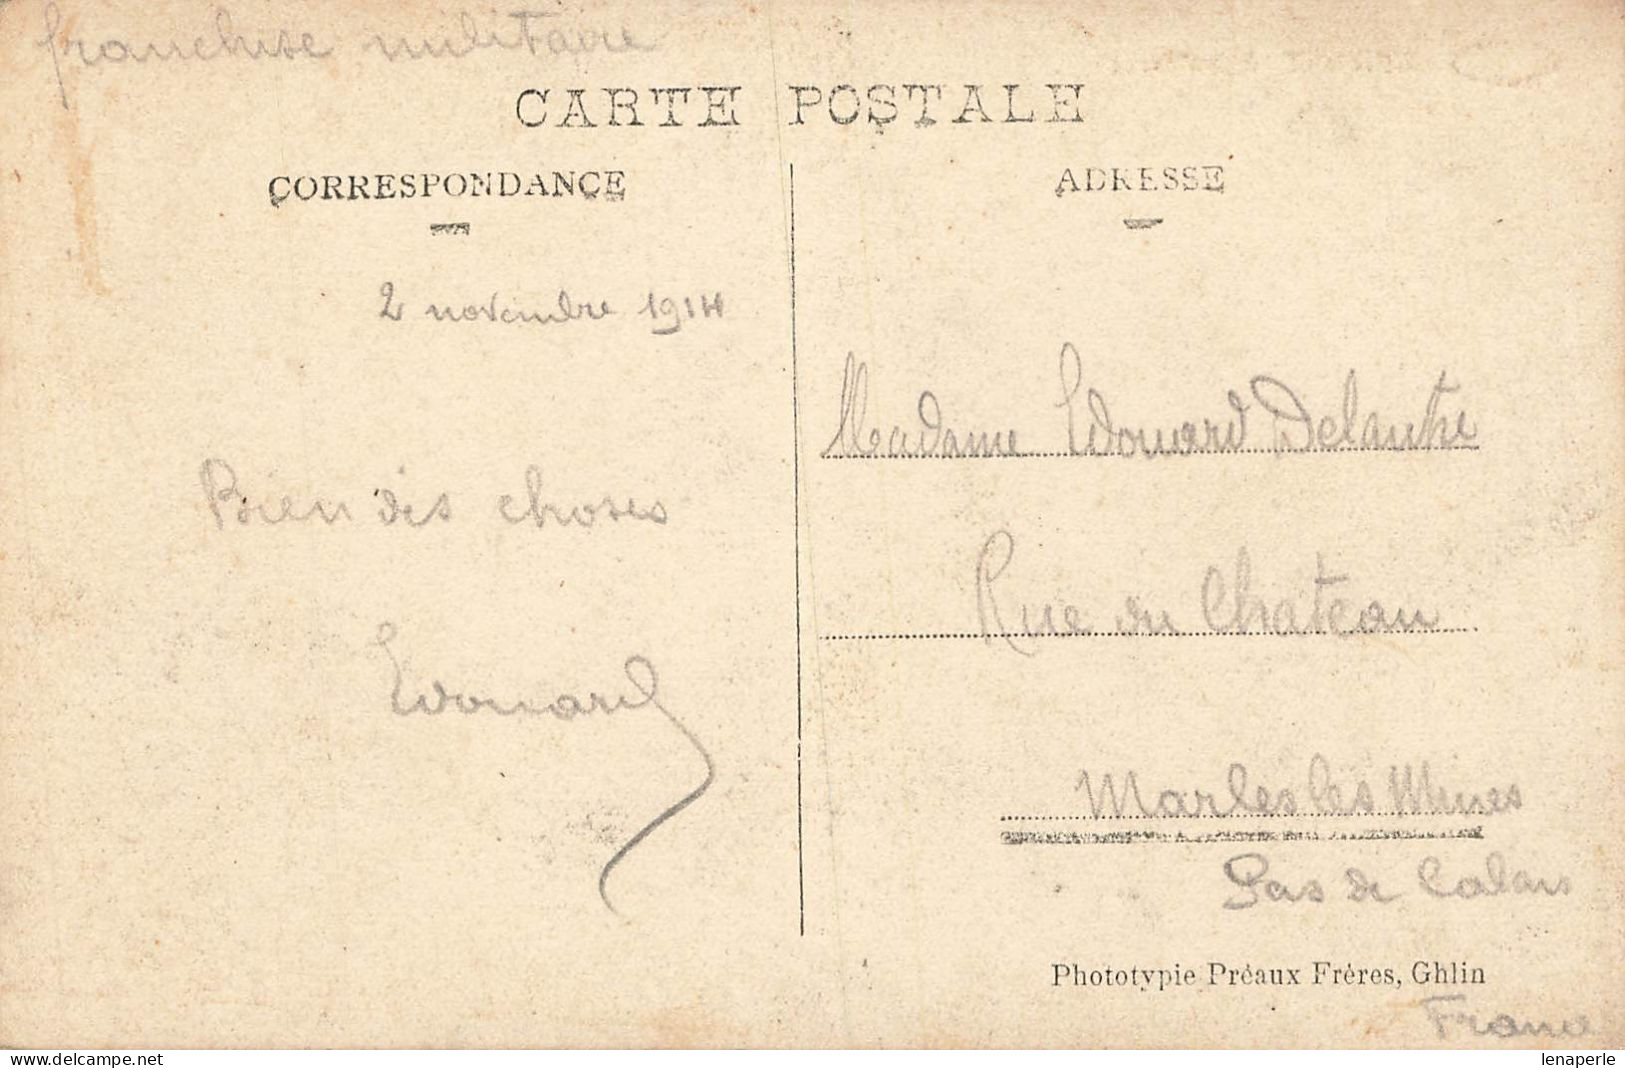 franchise militaire
CARTE POSTALE
CORRESPONDANCE
ADRESSE
2 novembre 1914
Bien des choses
Edouard
Madame Edouard
Rue du Chateau
Marles les Mines
Pas de Calais
Phototypie Préaux Frères, Ghlin
France
lenaperle